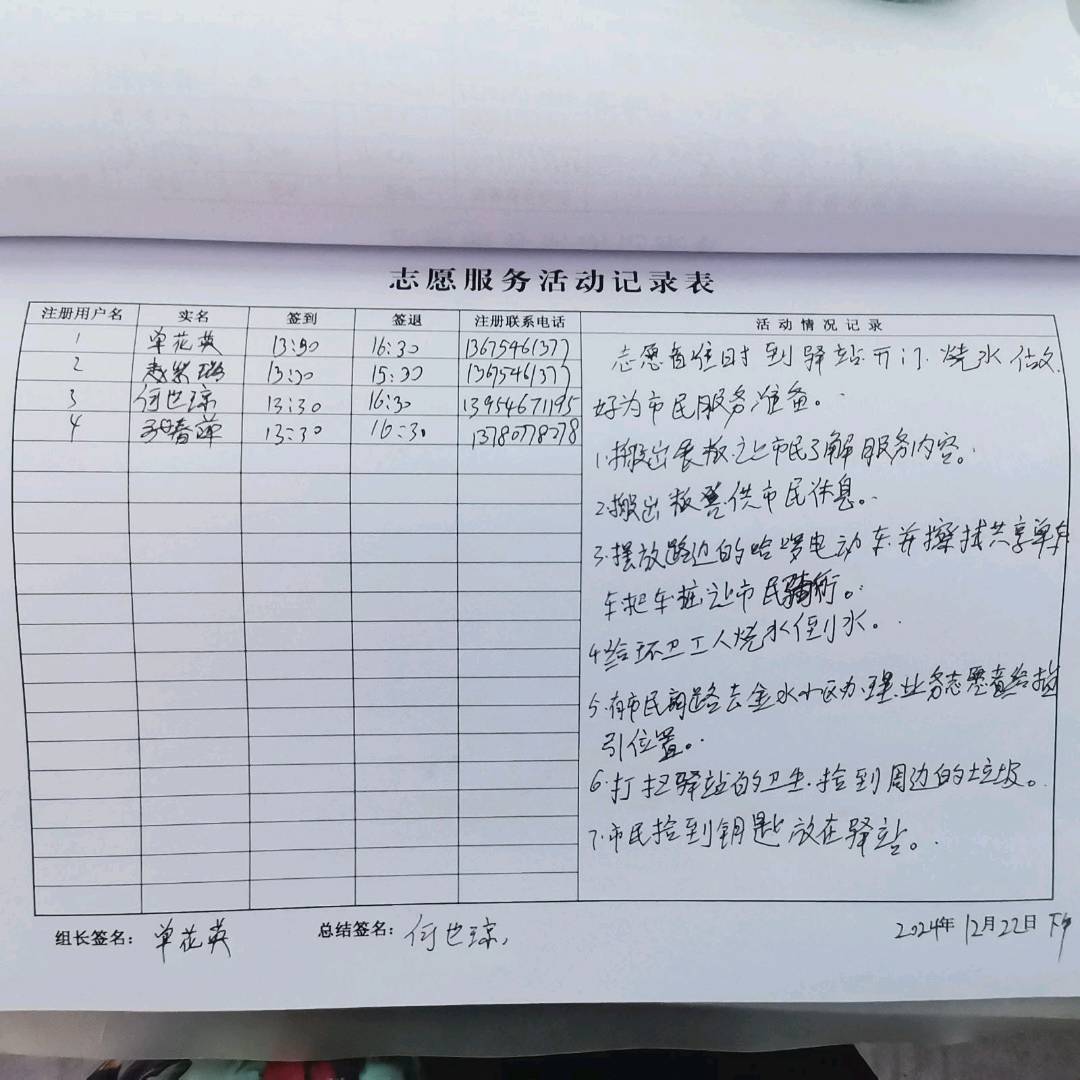 志愿服务活动记录表
注册用户名 实名 签到 签退 注册联系电话 活动情况记录
1 单花英 13:30 16:30 13675461377
2 赵 13:30 15:30 13675461377
3 何世琼 13:30 16:30 13954671195
4 春萍 13:30 16:30 13780778278
志愿者 到驿站.开门.烧水.做
好为市民服务准备。
1.搬出展板.让市民了解服务内容。
2.搬出板凳.供市民休息。
3.摆放路边的哈啰电动车.并擦拭共享单车
车把车 让市民骑行。
4.给环卫工人烧水倒水。
5.有市民问路去金水小区办理业务志愿者给指
引位置。
6.打扫驿站的卫生.捡到周边的垃圾。
7.市民捡到钥匙放在驿站。
组长签名： 单花英 总结签名： 何世琼 2024年12月22日 下午